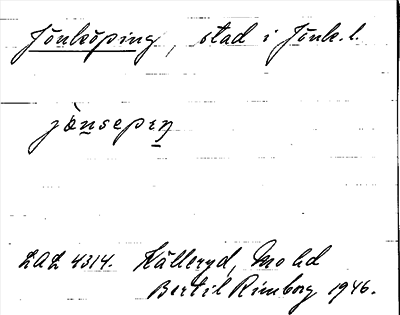 Jönköping, stad i Jönk. l.
jänsepiŋ
LAL 4314. Källeryd, Mo hd
Bertil Rimborg 1946.